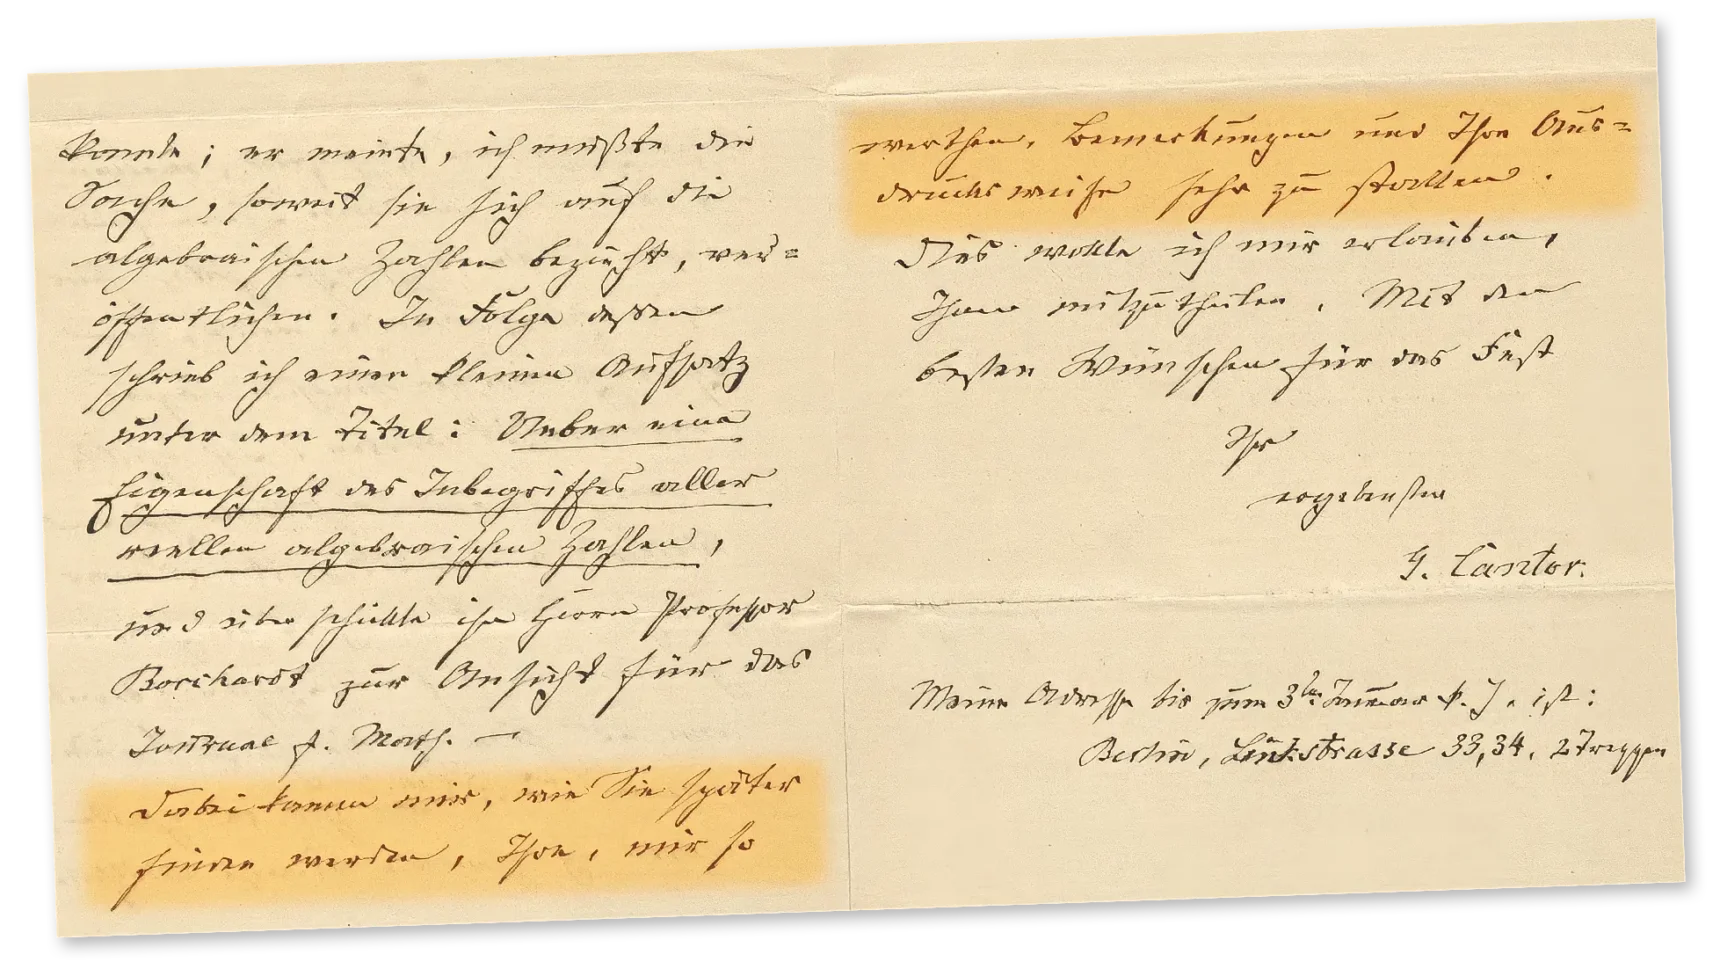 konnte; er meinte, ich müßte die
Sache, soweit sie sich auf die
algebraischen Zahlen bezieht, ver=
öffentlichen. In Folge dessen
schrieb ich einen kleinen Aufsatz
unter dem Titel: Ueber eine
Eigenschaft des Inbegriffes aller
reellen algebraischen Zahlen,
und überschickte ihn Herrn Professor
Borchardt zur Ansicht für das
Journal f. Math. —
Dabei kamen mir, wie Sie später
finden werden, Ihre, mir so
werthen, Bemerkungen und Ihre Aus=
drucksweise sehr zu statten.
Dies wollte ich mir erlauben,
Ihnen mitzutheilen. Mit den
besten Wünschen für das Fest
Ihr
ergebenster
G. Cantor.
Meine Adresse bis zum 3ten Januar k. J. ist:
Berlin, Linkstrasse 33,34, 2 Treppen